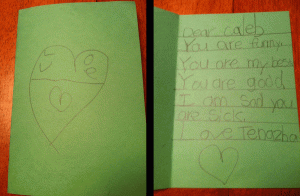 Dear caleb
You are funny
You are my best
You are good
I am sad you
are sick.
Love Tenazha